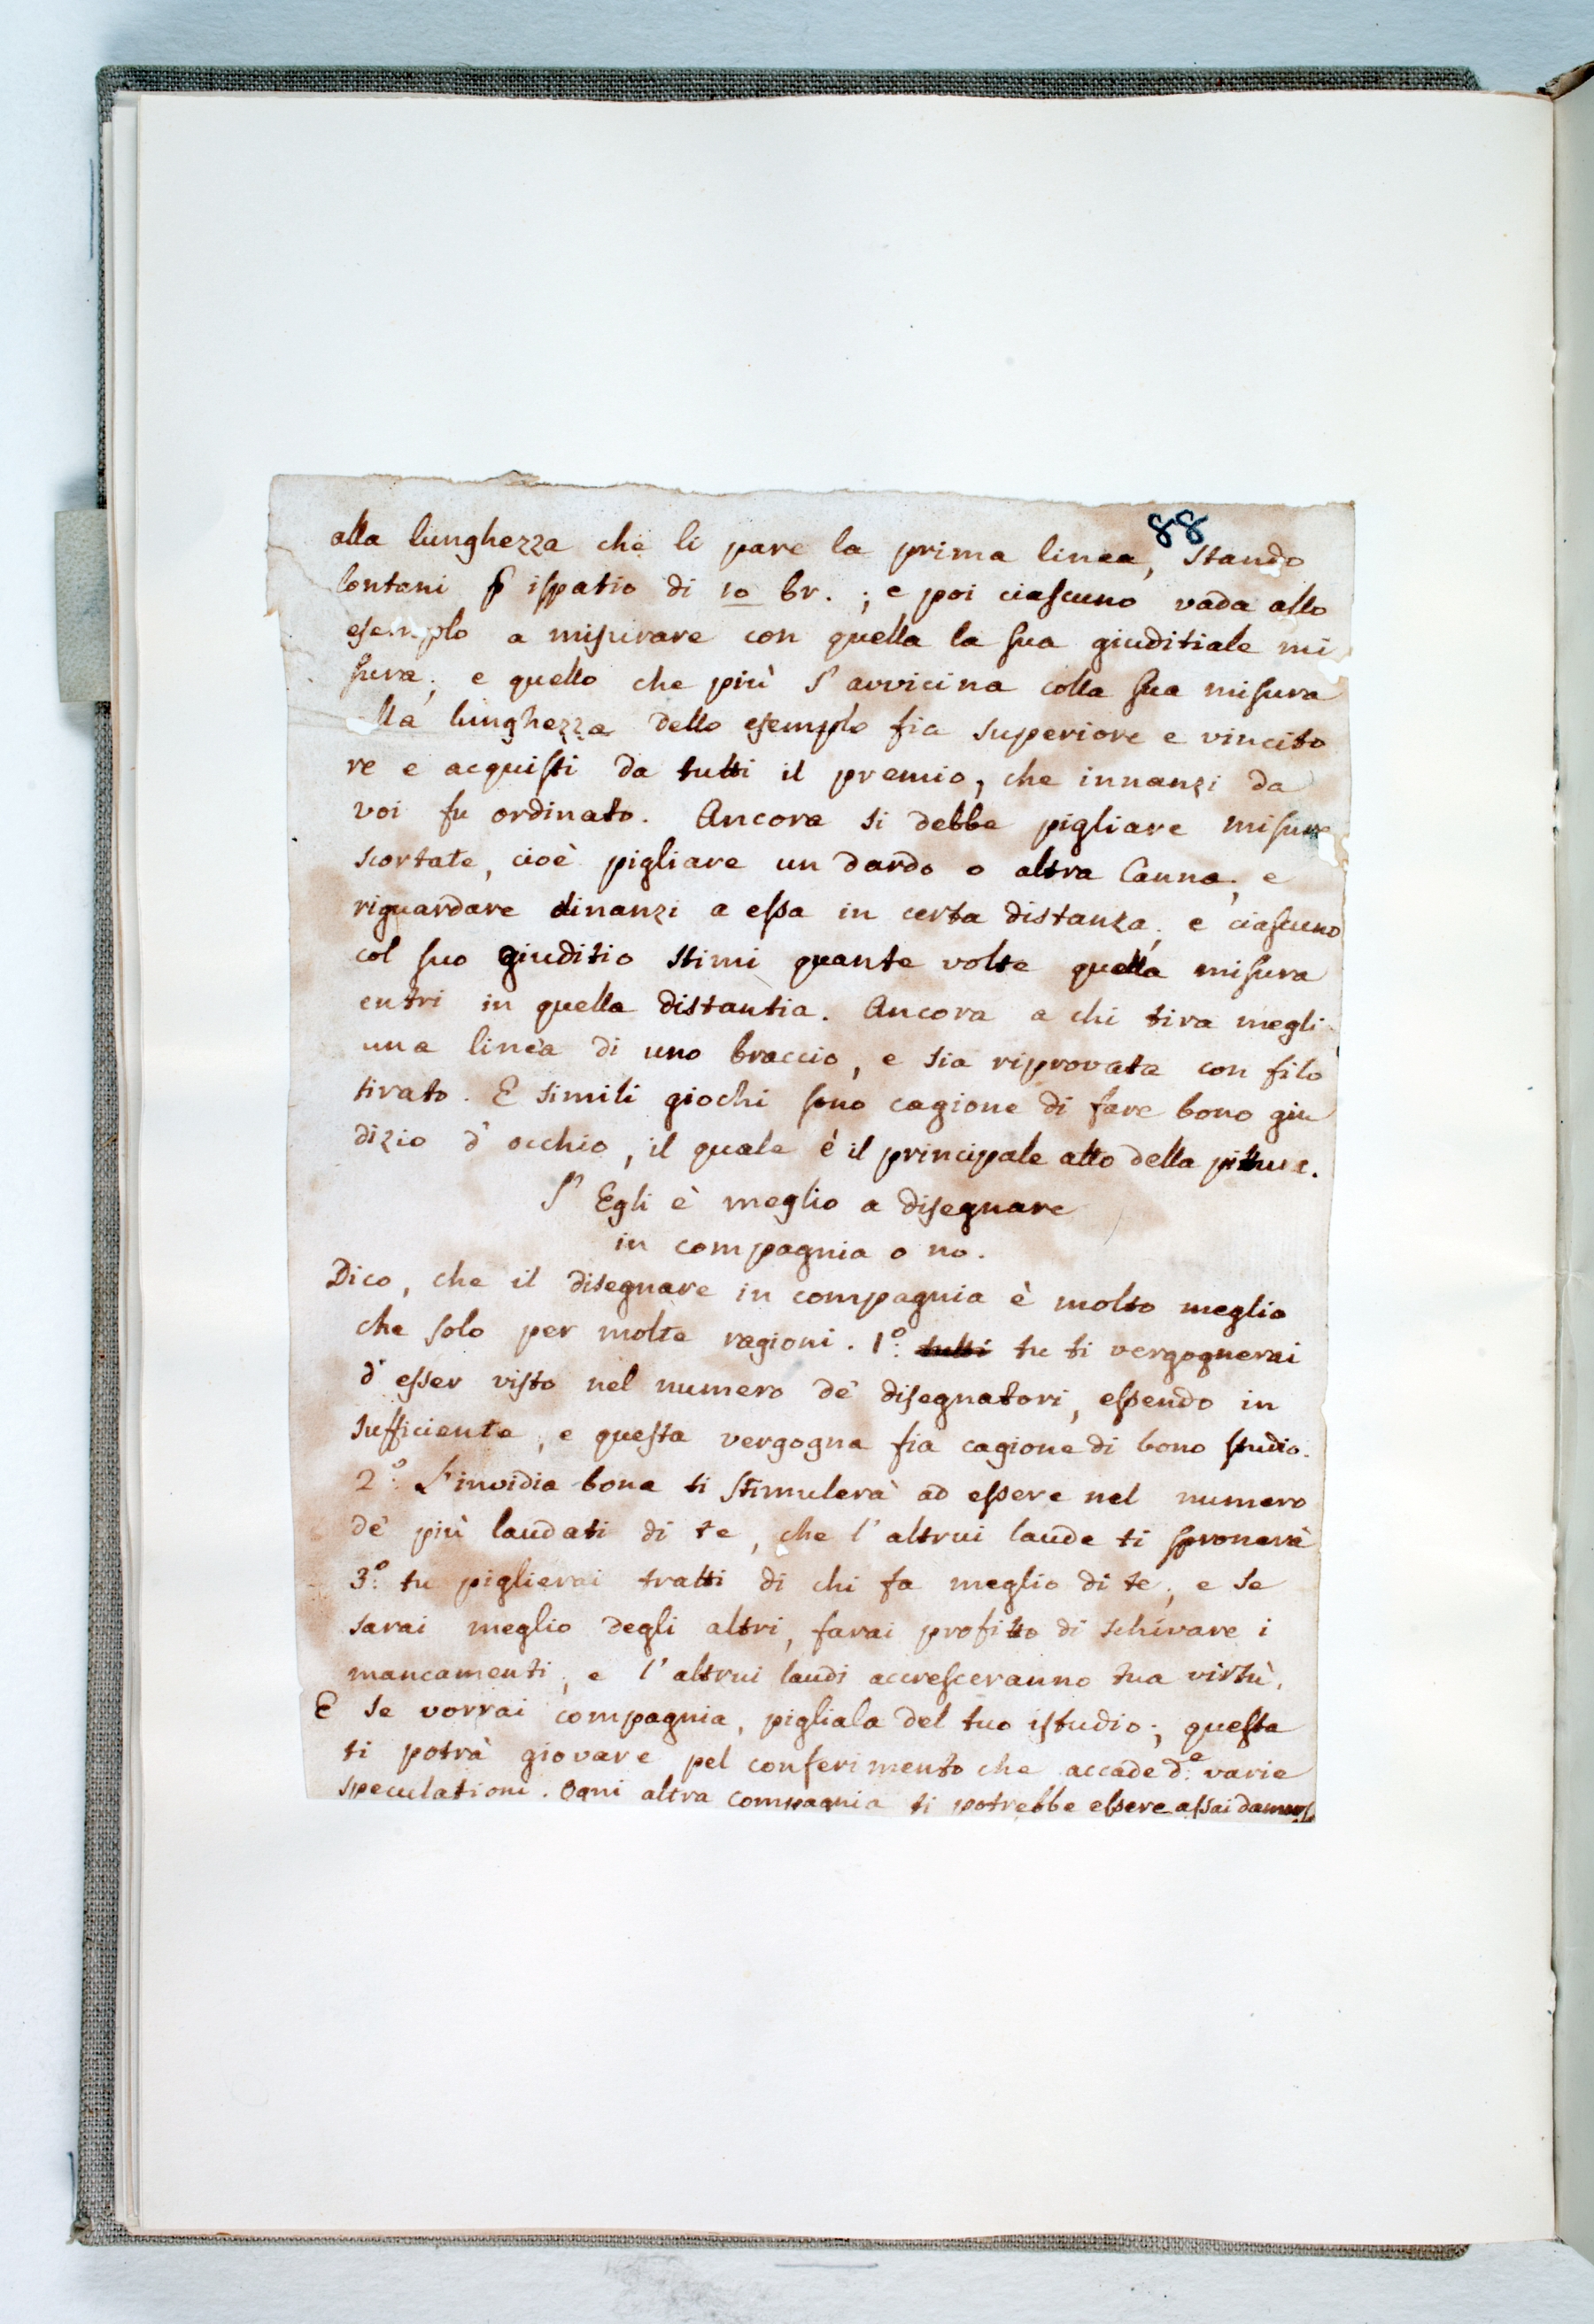 88
alla lunghezza che li pare la prima linea, stando
lontani ꝑ ispatio di 10 br. ; e poi ciascuno vada allo
esemplo a misurare con quella la sua giuditiale mi
sura; e quello che più s'avvicina colla sua misura
lla lunghezza dello esemplo fia superiore e vincito
re e acquisti da tutti il premio, che innanzi da
voi fu ordinato. Ancora si debbe pigliare misure
scortate, cioè pigliare un dardo o altra Canna, e
riguardare dinanzi a essa in certa distanza; e ciascuno
col suo giuditio stimi quante volte quella misura
entri in quella distantia. Ancora a chi tira megli
una linea di uno braccio, e sia riprovata con filo
tirato. E simili giochi sono cagione di fare bono giu
dizio d'occhio, il quale è il principale atto della pittura.
S' Egli è meglio a disegnare
in compagnia o no.
Dico, che il disegnare in compagnia è molto meglio
che solo per molte ragioni. 1º: tutti tu ti vergognerai
d'esser visto nel numero de' disegnatori, essendo in
sufficiente, e questa vergogna fia cagione di bono studio.
2º: L'invidia bona ti stimulerà ad essere nel numero
de' più laudati di te, che l'altrui laude ti spronerà
3º: tu piglierai tratti di chi fa meglio di te; e se
sarai meglio degli altri, farai profitto di schivare i
mancamenti, e l'altrui laudi accresceranno tua virtù.
E se vorrai compagnia, pigliala del tuo istudio; questa
ti potrà giovare pel conferimento che accade d:e varie
speculationi. Ogni altra compagnia ti potrebbe essere assai damnos